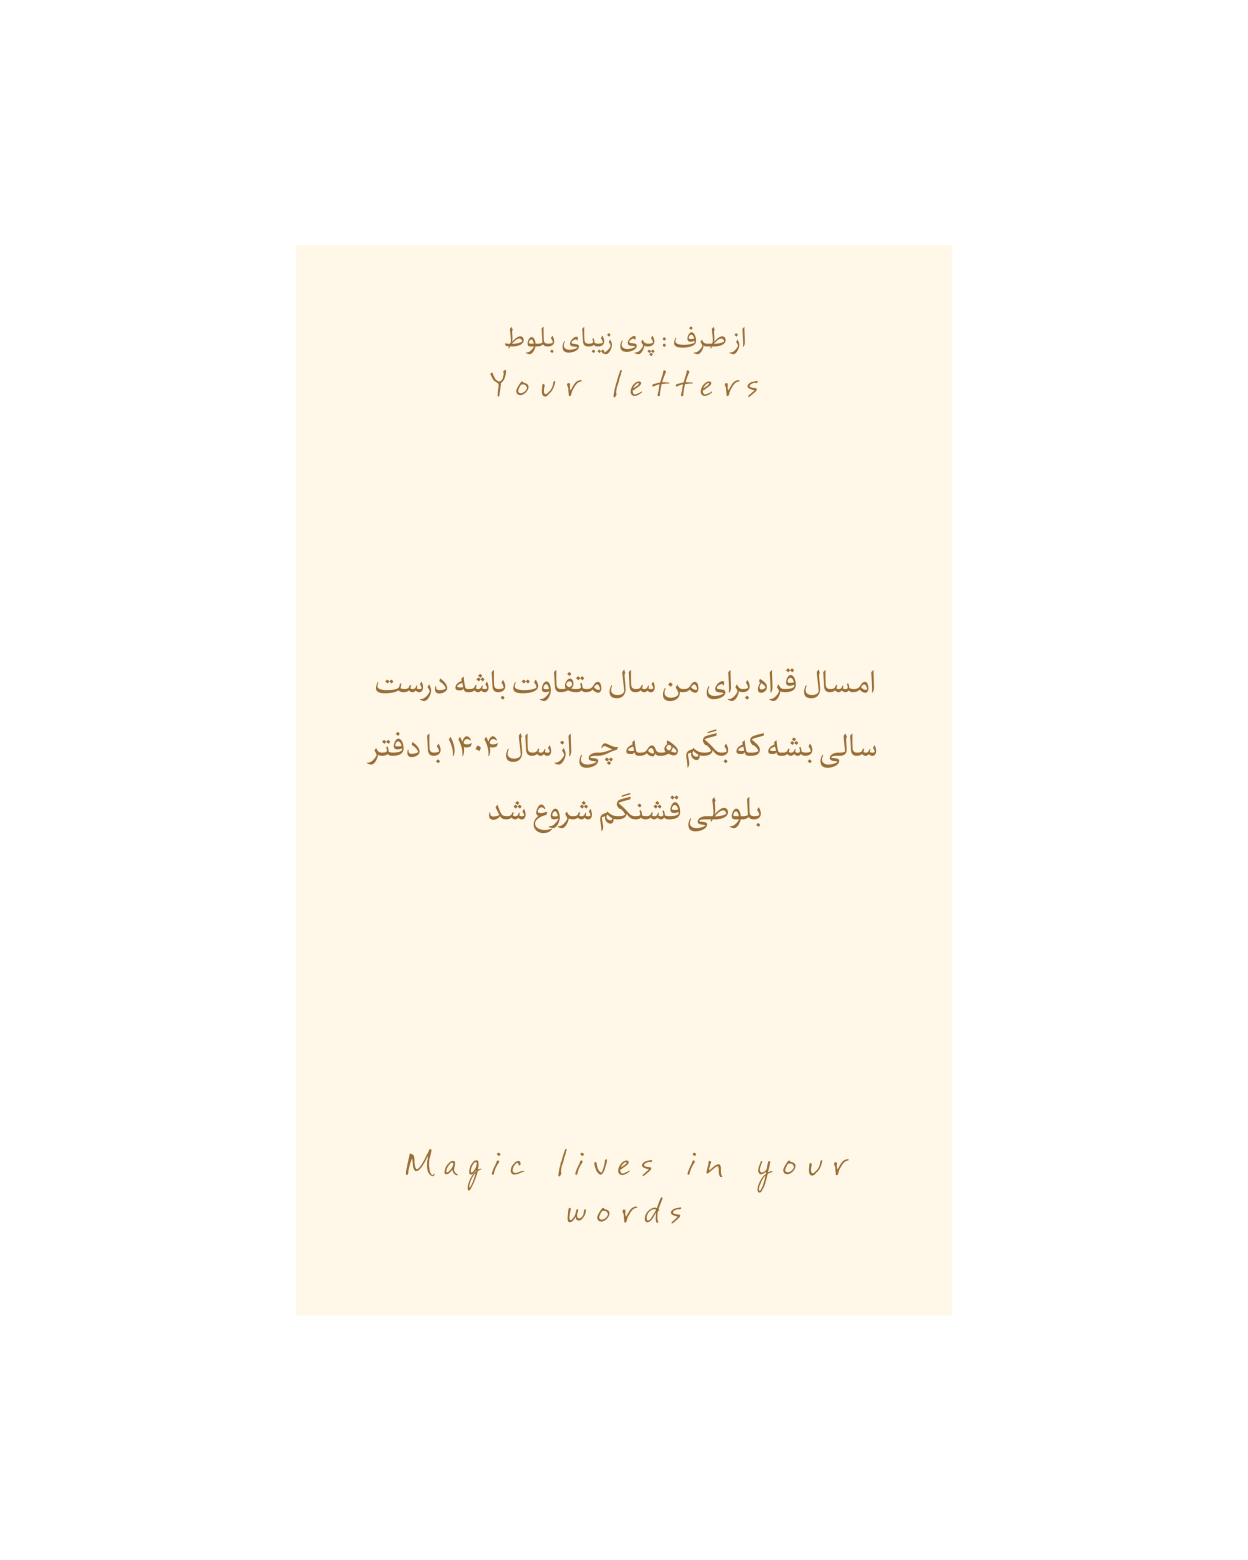 از طرف : پری زیبای بلوط
Your letters
امسال قراه برای من سال متفاوت باشه درست
سالی بشه که بگم همه چی از سال ۱۴۰۴ با دفتر
بلوطی قشنگم شروع شد
Magic lives in your
words